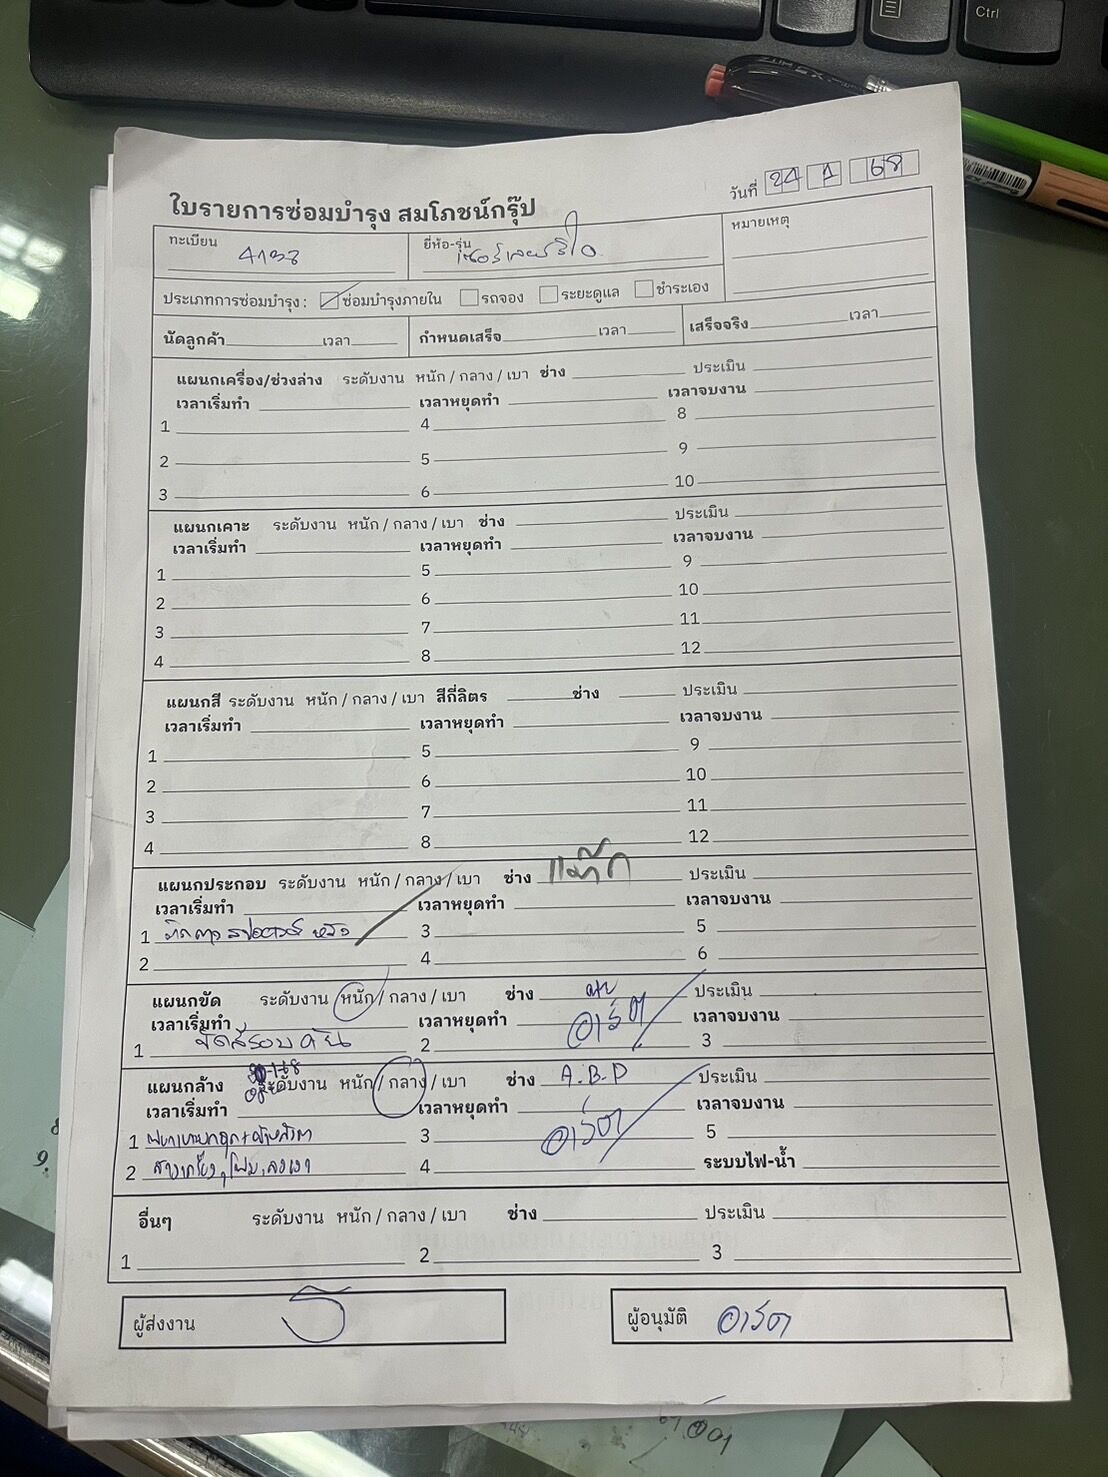 Ctrl
ใบรายการซ่อมบำรุง สมโภชน์กรุ๊ป
วันที่ 24 1 68
ทะเบียน 4138
ยี่ห้อ-รุ่น
หมายเหตุ
ประเภทการซ่อมบำรุง : ซ่อมบำรุงภายใน รถจอง ระยะดูแล ชำระเอง
นัดลูกค้า เวลา กำหนดเสร็จ เวลา เสร็จจริง เวลา
แผนกเครื่อง/ช่วงล่าง ระดับงาน หนัก / กลาง / เบา ช่าง ประเมิน
เวลาเริ่มทำ เวลาหยุดทำ เวลาจบงาน
1 4 8
2 5 9
3 6 10
แผนกเคาะ ระดับงาน หนัก / กลาง / เบา ช่าง ประเมิน
เวลาเริ่มทำ เวลาหยุดทำ เวลาจบงาน
1 5 9
2 6 10
3 7 11
4 8 12
แผนกสี ระดับงาน หนัก / กลาง / เบา สีกี่ลิตร ช่าง ประเมิน
เวลาเริ่มทำ เวลาหยุดทำ เวลาจบงาน
1 5 9
2 6 10
3 7 11
4 8 12
แผนกประกอบ ระดับงาน หนัก / กลาง / เบา ช่าง แม๊ก ประเมิน
เวลาเริ่มทำ เวลาหยุดทำ เวลาจบงาน
1 3 5
2 4 6
แผนกขัด ระดับงาน หนัก / กลาง / เบา ช่าง ประเมิน
เวลาเริ่มทำ เวลาหยุดทำ อาร์ต เวลาจบงาน
1 ขัดสีรอบคัน 2 3
แผนกล้าง ระดับงาน หนัก / กลาง / เบา ช่าง A.B.D ประเมิน
เวลาเริ่มทำ เวลาหยุดทำ เวลาจบงาน
1 3 อาร์ต 5
2 4 ระบบไฟ-น้ำ
อื่นๆ ระดับงาน หนัก / กลาง / เบา ช่าง ประเมิน
1 2 3
ผู้ส่งงาน
ผู้อนุมัติ อาร์ต